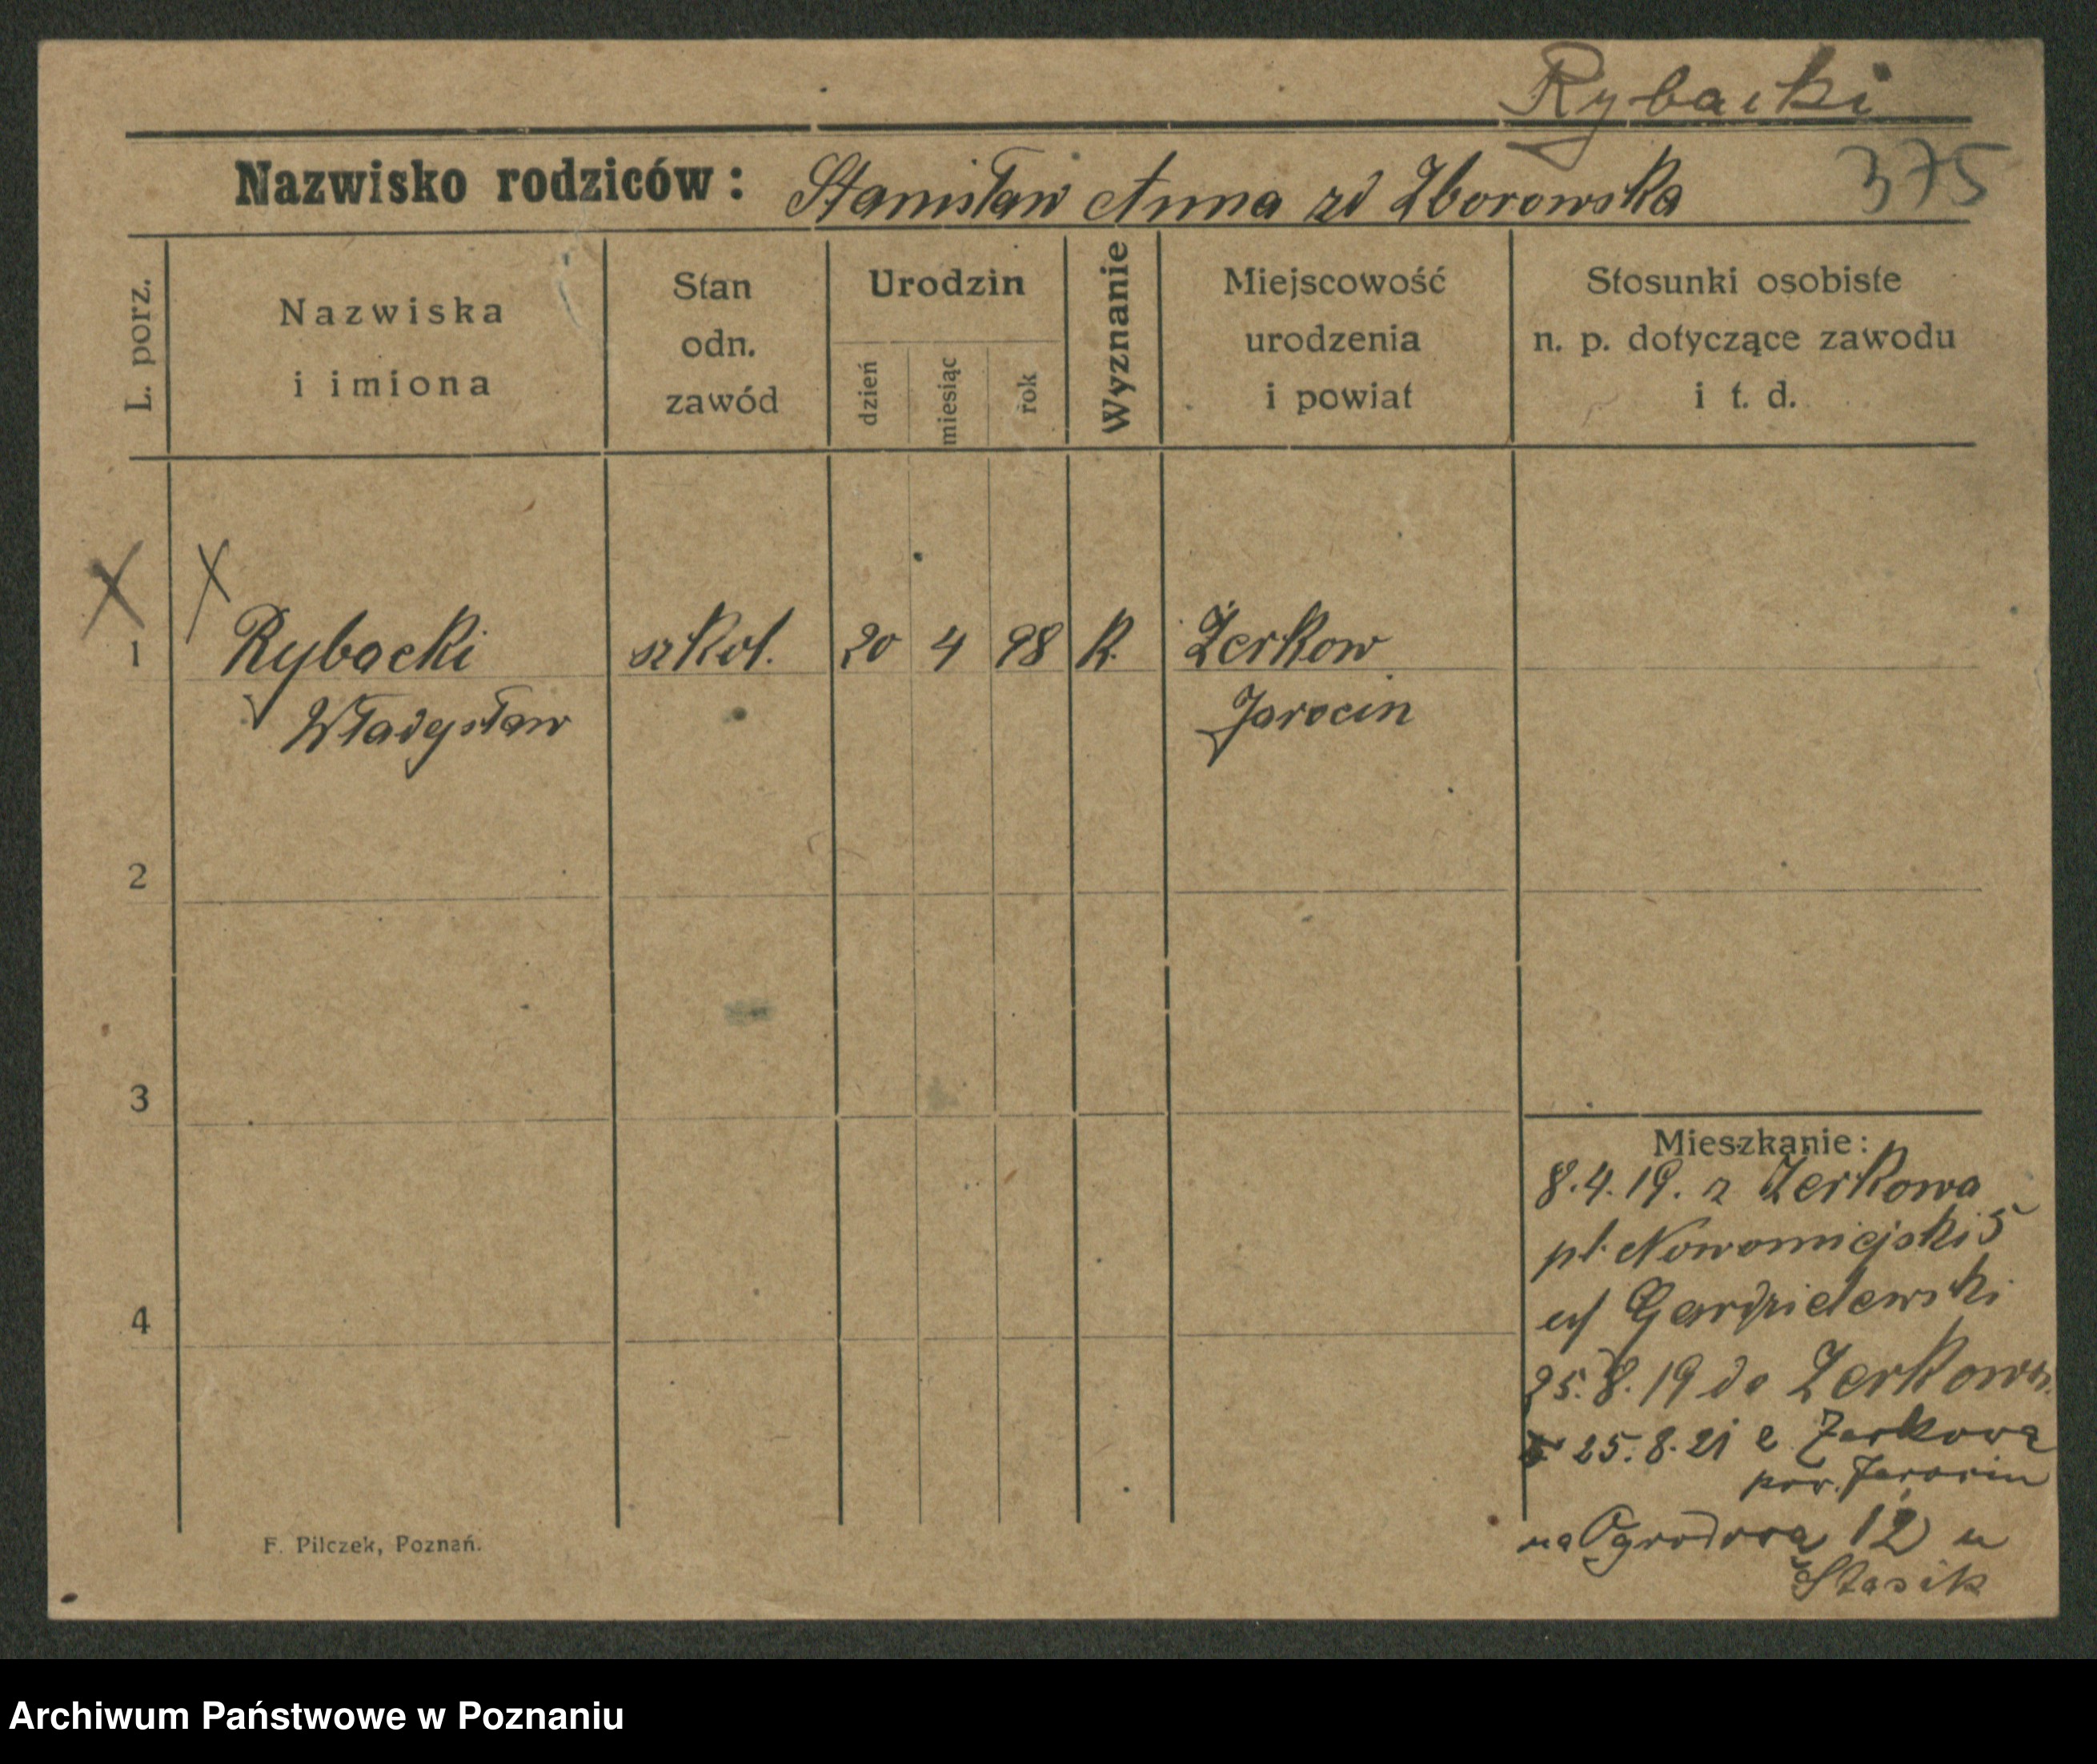 Rybacki
Nazwisko rodziców: Stanisław Anna zd Zborowska 375
L. porz.
Nazwiska
i imiona
Stan
odn.
zawód
Urodzin
dzień
miesiąc
rok
Wyznanie
Miejscowość
urodzenia
i powiat
Stosunki osobiste
n. p. dotyczące zawodu
i t. d.
X X
1 Rybacki szkol. 20 4 98 K. Żerkow
Władysław Jarocin
2
3
4
Mieszkanie:
8.4.19. z Zerkowa
pl. Nowomiejski 5
25.8.19 do Zerkowa
25.8.21 z Zerkowa
pow. Jarocin
na Ogrodową 12 u
Stasik
F. Pilczek, Poznań.
Archiwum Państwowe w Poznaniu